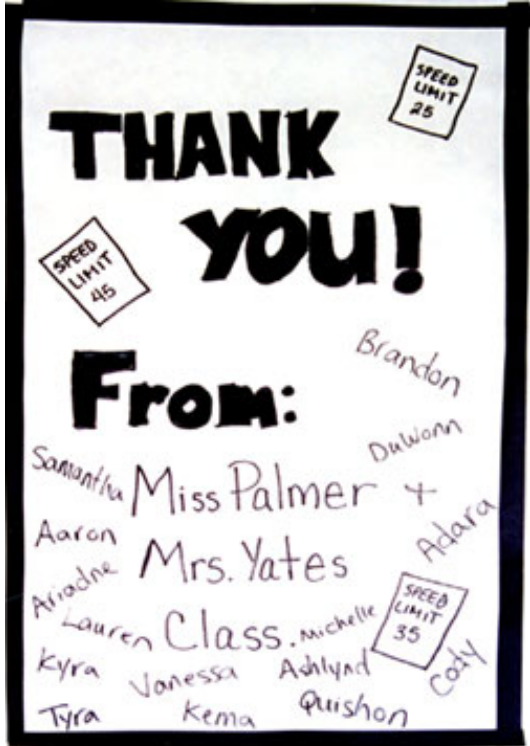 SPEED
LIMIT
25
THANK
YOU!
SPEED
LIMIT
45
From:
Brandon
DuWonn
Samantha
Miss Palmer +
Adara
Aaron
Mrs. Yates
Ariadne
Lauren
Class.
Michelle
SPEED
LIMIT
35
Kyra
Vanessa
Ashlynd
Cody
Tyra
Kema
Quishon